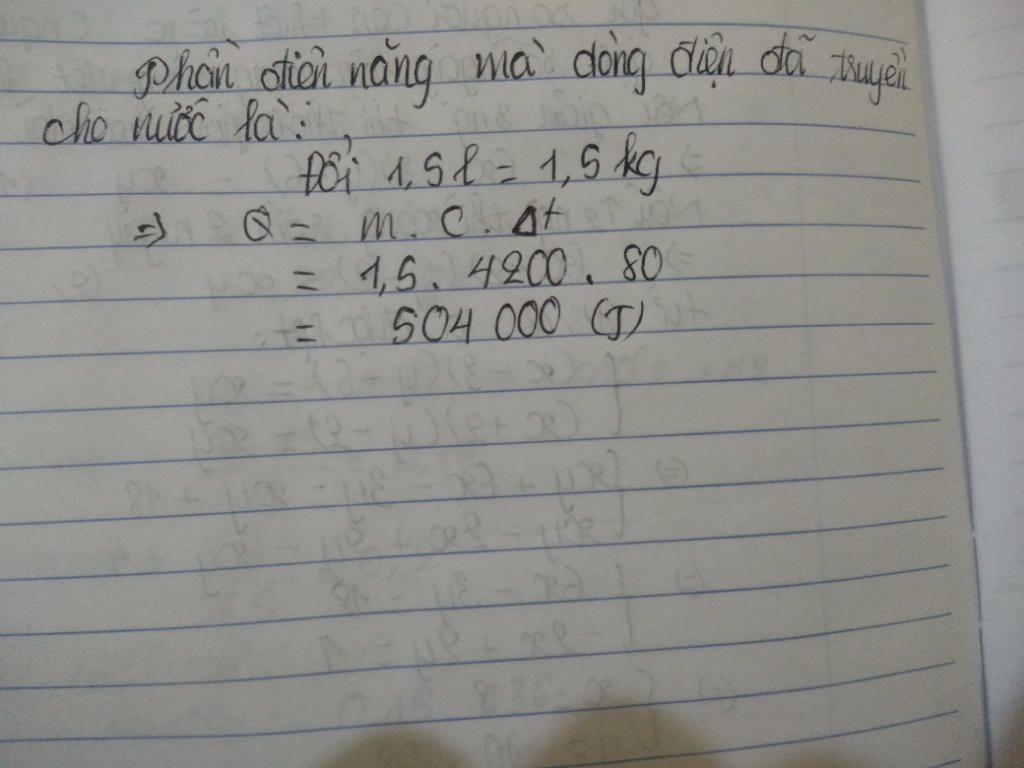 Phần điện năng mà dòng điện đã truyền
cho nước là:
Đổi 1,5l = 1,5 kg
=> Q = m. C. Δt
= 1,5. 4200. 80
= 504 000 (J)